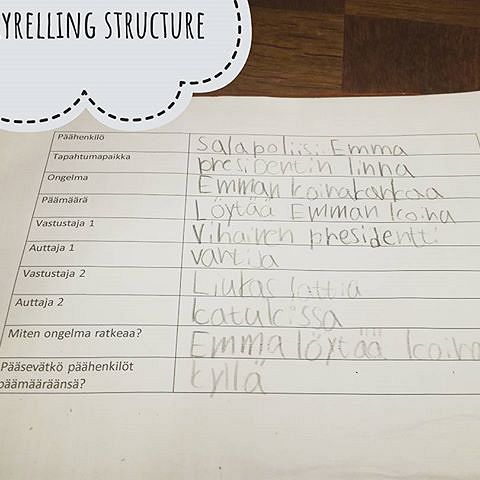 YRELLING STRUCTURE
Päähenkilö salapoliisi Emma
Tapahtumapaikka presidentin linna
Ongelma Emman koira karkaa
Päämäärä Löytää Emman koira
Vastustaja 1 Vihainen presidentti
Auttaja 1 vartija
Vastustaja 2 Liukas lattia
Auttaja 2 katukissa
Miten ongelma ratkeaa? Emma löytää koira
Pääsevätkö päähenkilöt kyllä
päämääräänsä?